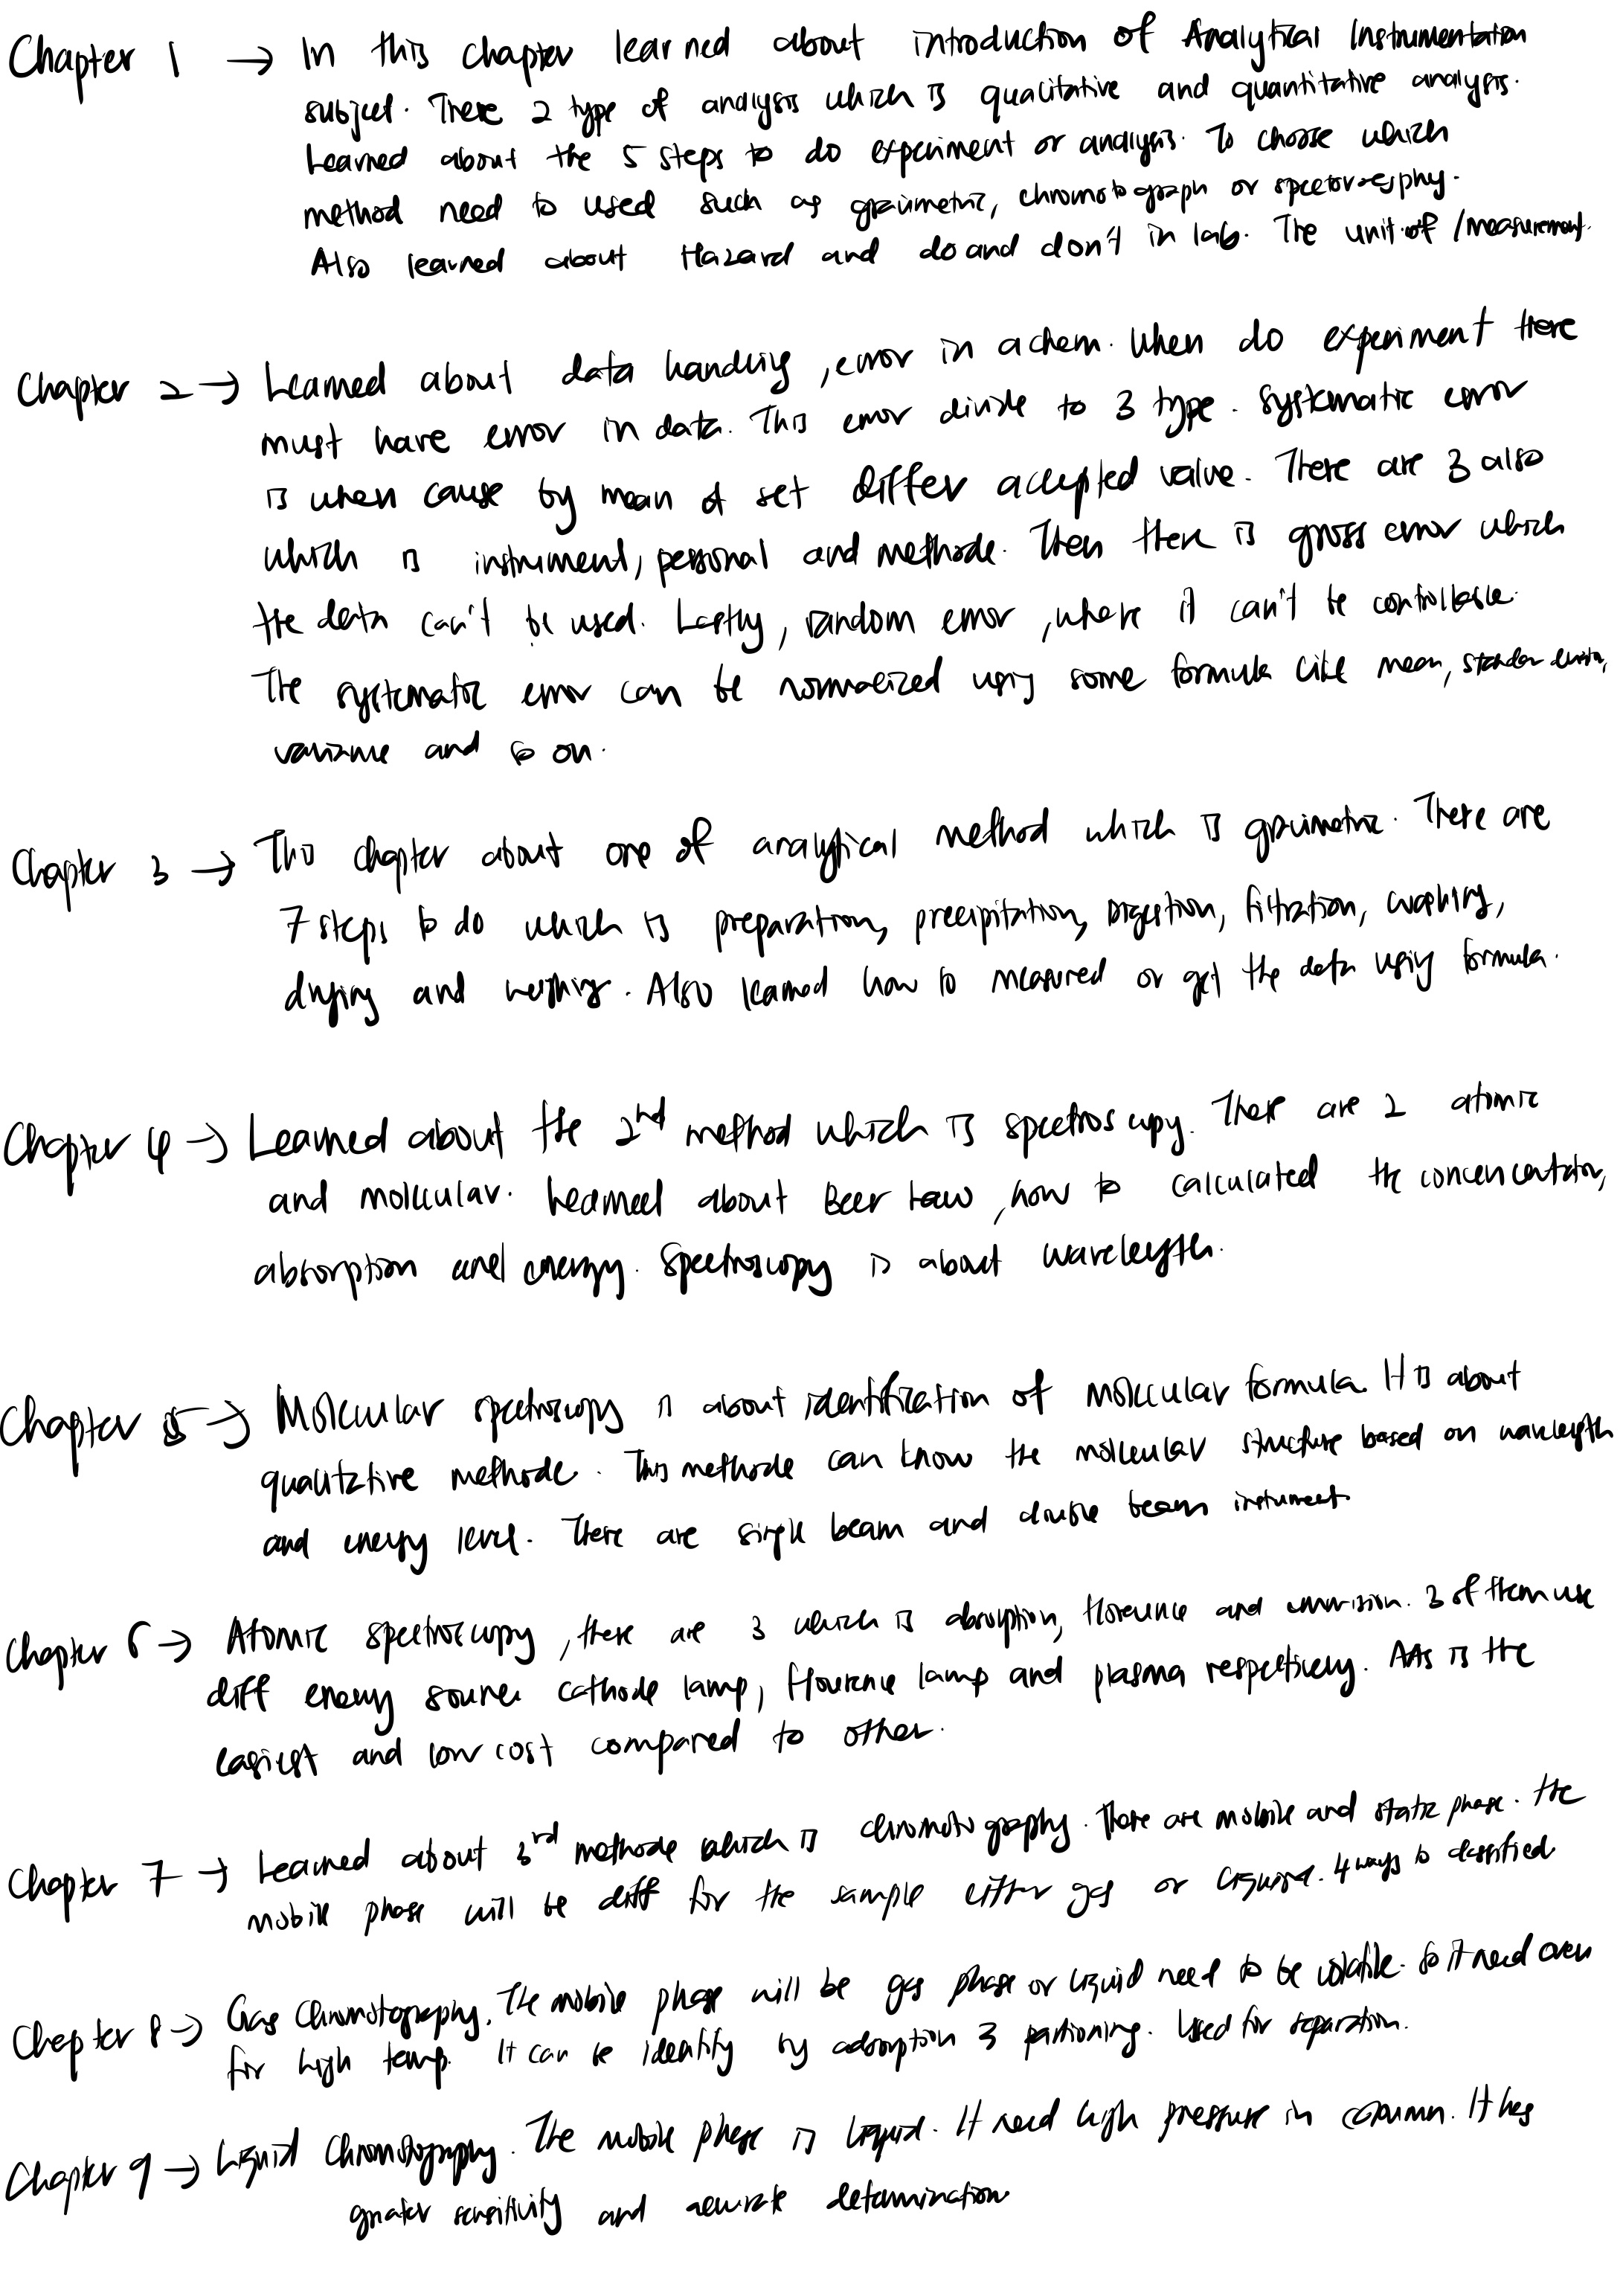 Chapter 1 → In this chapter learned about introduction of Analytical Instrumentation
subject. There 2 type of analysis which is qualitative and quantitative analysis.
Learned about the 5 steps to do experiment or analysis. To choose which
method need to used such as gravimetric, chromotograph or
Also learned about Hazard and do and don't in lab. The unit of / measurement.
Chapter 2 → Learned about data handling, error in a chem. When do experiment there
must have error in data. This error divide to 3 type. Systematic error
is when cause by mean of set differ accepted value. There are 3 also
which is instrument, personal and methode. Then there is gross error which
the data can't be used. Lastly, random error, where it can't be controllable.
The systematic error can be normalized using some formula like mean,
variance and so on.
Chapter 3 → This chapter about one of analytical method which is gravimetric. There are
7 steps to do which is preparation, precipitation, Digestion, filtration, washing,
drying and weighing. Also learned how to measured or get the data using formula.
Chapter 4 → Learned about the 2nd method which is spectroscopy. There are 2 atomic
and molecular. Learned about Beer Law, how to calculated the
absorption and energy. Spectroscopy is about wavelength.
Chapter 5 → Molecular spectroscopy is about identification of molecular formula. It is about
qualitative methode. This methode can know the molecular structure based on wavelength
and energy level. There are single beam and double beam instrument
Chapter 6 → Atomic spectroscopy, there are 3 which is absorption, and 3 of them use
diff energy source cathode lamp, lamp and plasma respectively. AAS is the
easiest and low cost compared to other.
Chapter 7 → Learned about 3rd methode which is chromotography. There are mobile and static phase. The
mobile phase will be diff for the sample either gas or liquid. 4 ways to classified
Chapter 8 → Gas Chromotography. The mobile phase will be gas phase or liquid need to be volatile. So it need oven
for high temp. It can be identify by adsorption 3 partioning. Used for separation.
Chapter 9 → Liquid Chromotography. The mobile phase is liquid. It need high pressure in column. It has
greater sensitivity and accurate determination